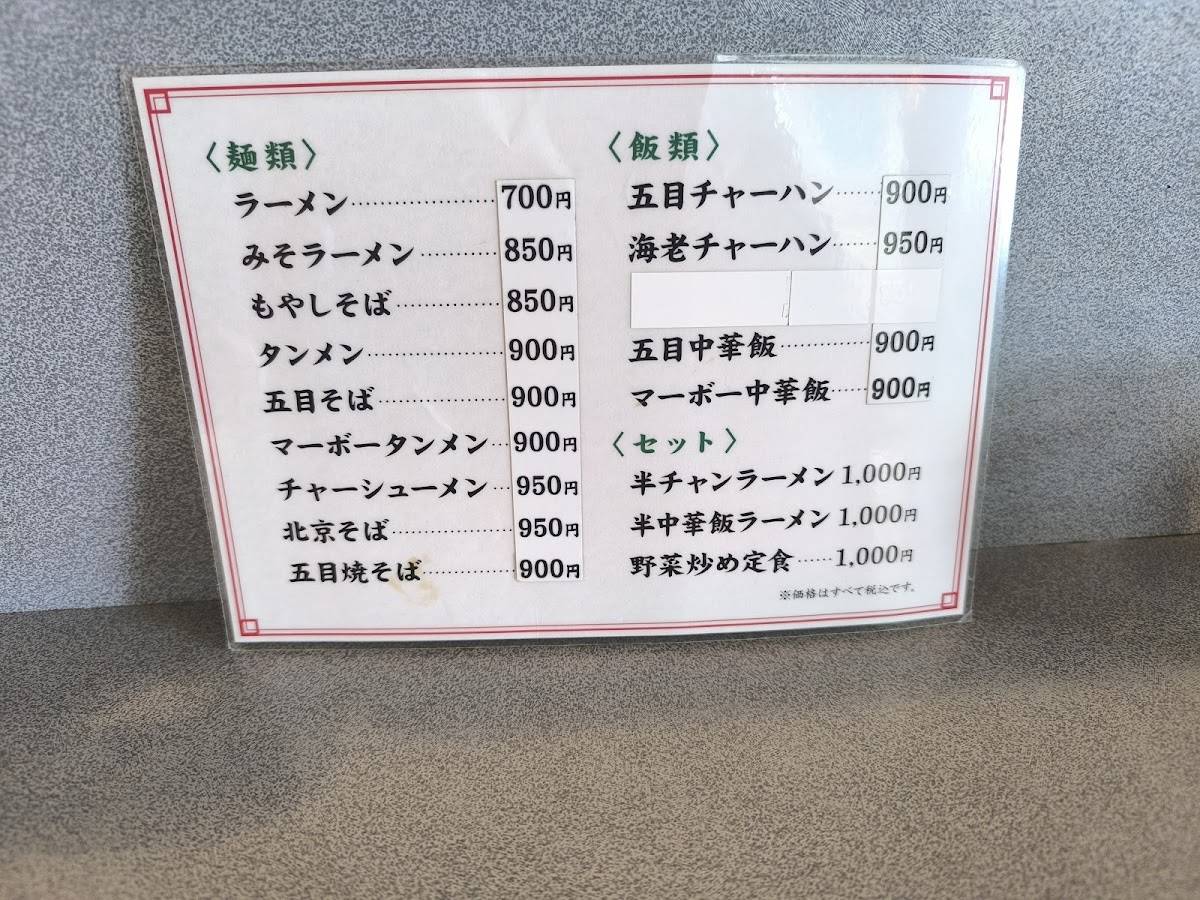 〈麺類〉
ラーメン……………… 700円
みそラーメン……… 850円
もやしそば………… 850円
タンメン…………… 900円
五目そば…………… 900円
マーボータンメン… 900円
チャーシューメン… 950円
北京そば…………… 950円
五目焼そば………… 900円
〈飯類〉
五目チャーハン…… 900円
海老チャーハン…… 950円
五目中華飯………… 900円
マーボー中華飯…… 900円
〈セット〉
半チャンラーメン 1,000円
半中華飯ラーメン 1,000円
野菜炒め定食…… 1,000円
※価格はすべて税込です。